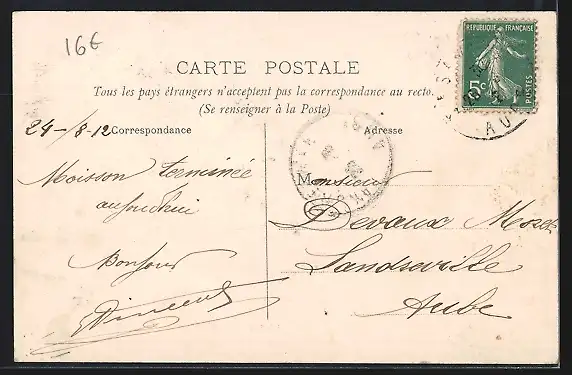 16€
CARTE POSTALE
Tous les pays étrangers n'acceptent pas la correspondance au recto.
(Se renseigner à la Poste)
RÉPUBLIQUE FRANÇAISE
5c
POSTES
24-/8-12 Correspondance
Adresse
Moisson terminée
aujourd'hui
Bonjour
Vincent
Monsieur
Devaux
Landreville
Aube